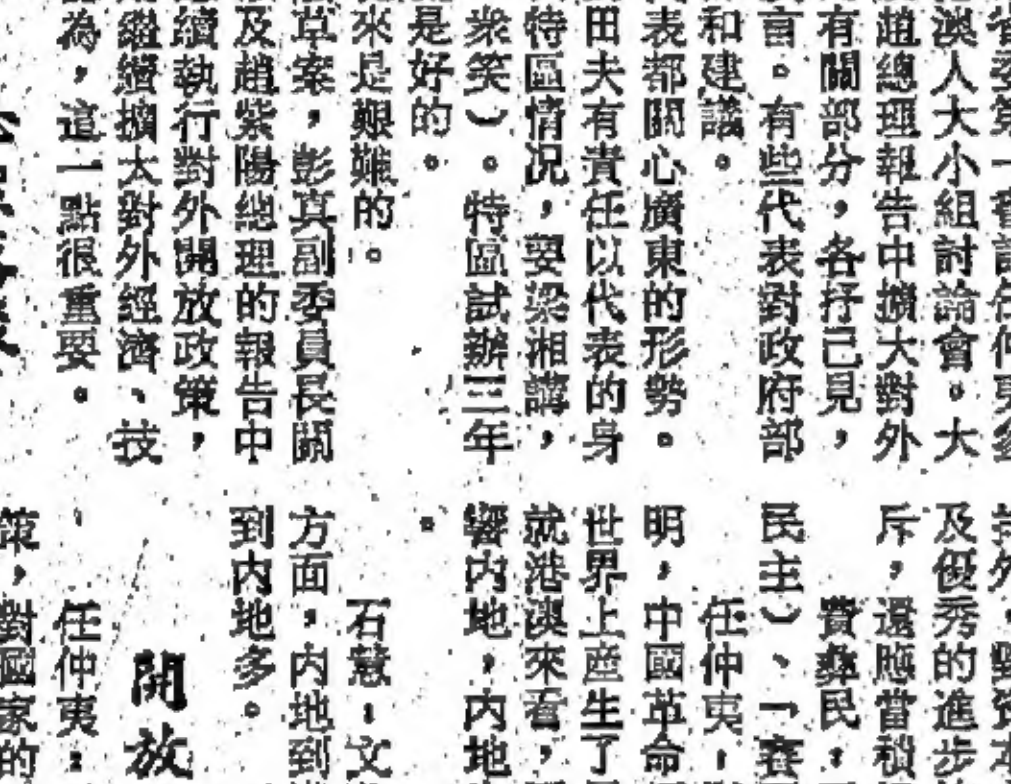 省委第一書記任仲夷參
港澳人大小組討論會。大
趙總理報告中擴大對外
有關部分，各抒己見，
言。有些代表對政府部
和建議。
代表都關心廣東的形勢。
田夫有責任以代表的身
特區情況，要梁湘講，
衆笑）。特區試辦三年
是好的。
來是艱難的。
草案，彭真副委員長關
及趙紫陽總理的報告中
續執行對外開放政策，
繼續擴大對外經濟、技
為，這一點很重要。
及優秀的進步
斥，還應當積
費彝民：
民主）、「賽
任仲夷：
明，中國革命
世界上產生了
就港澳來看，
響內地，內地
。
石慧：文
方面，內地到
到內地多。
開放
任仲夷：
策，對國家的